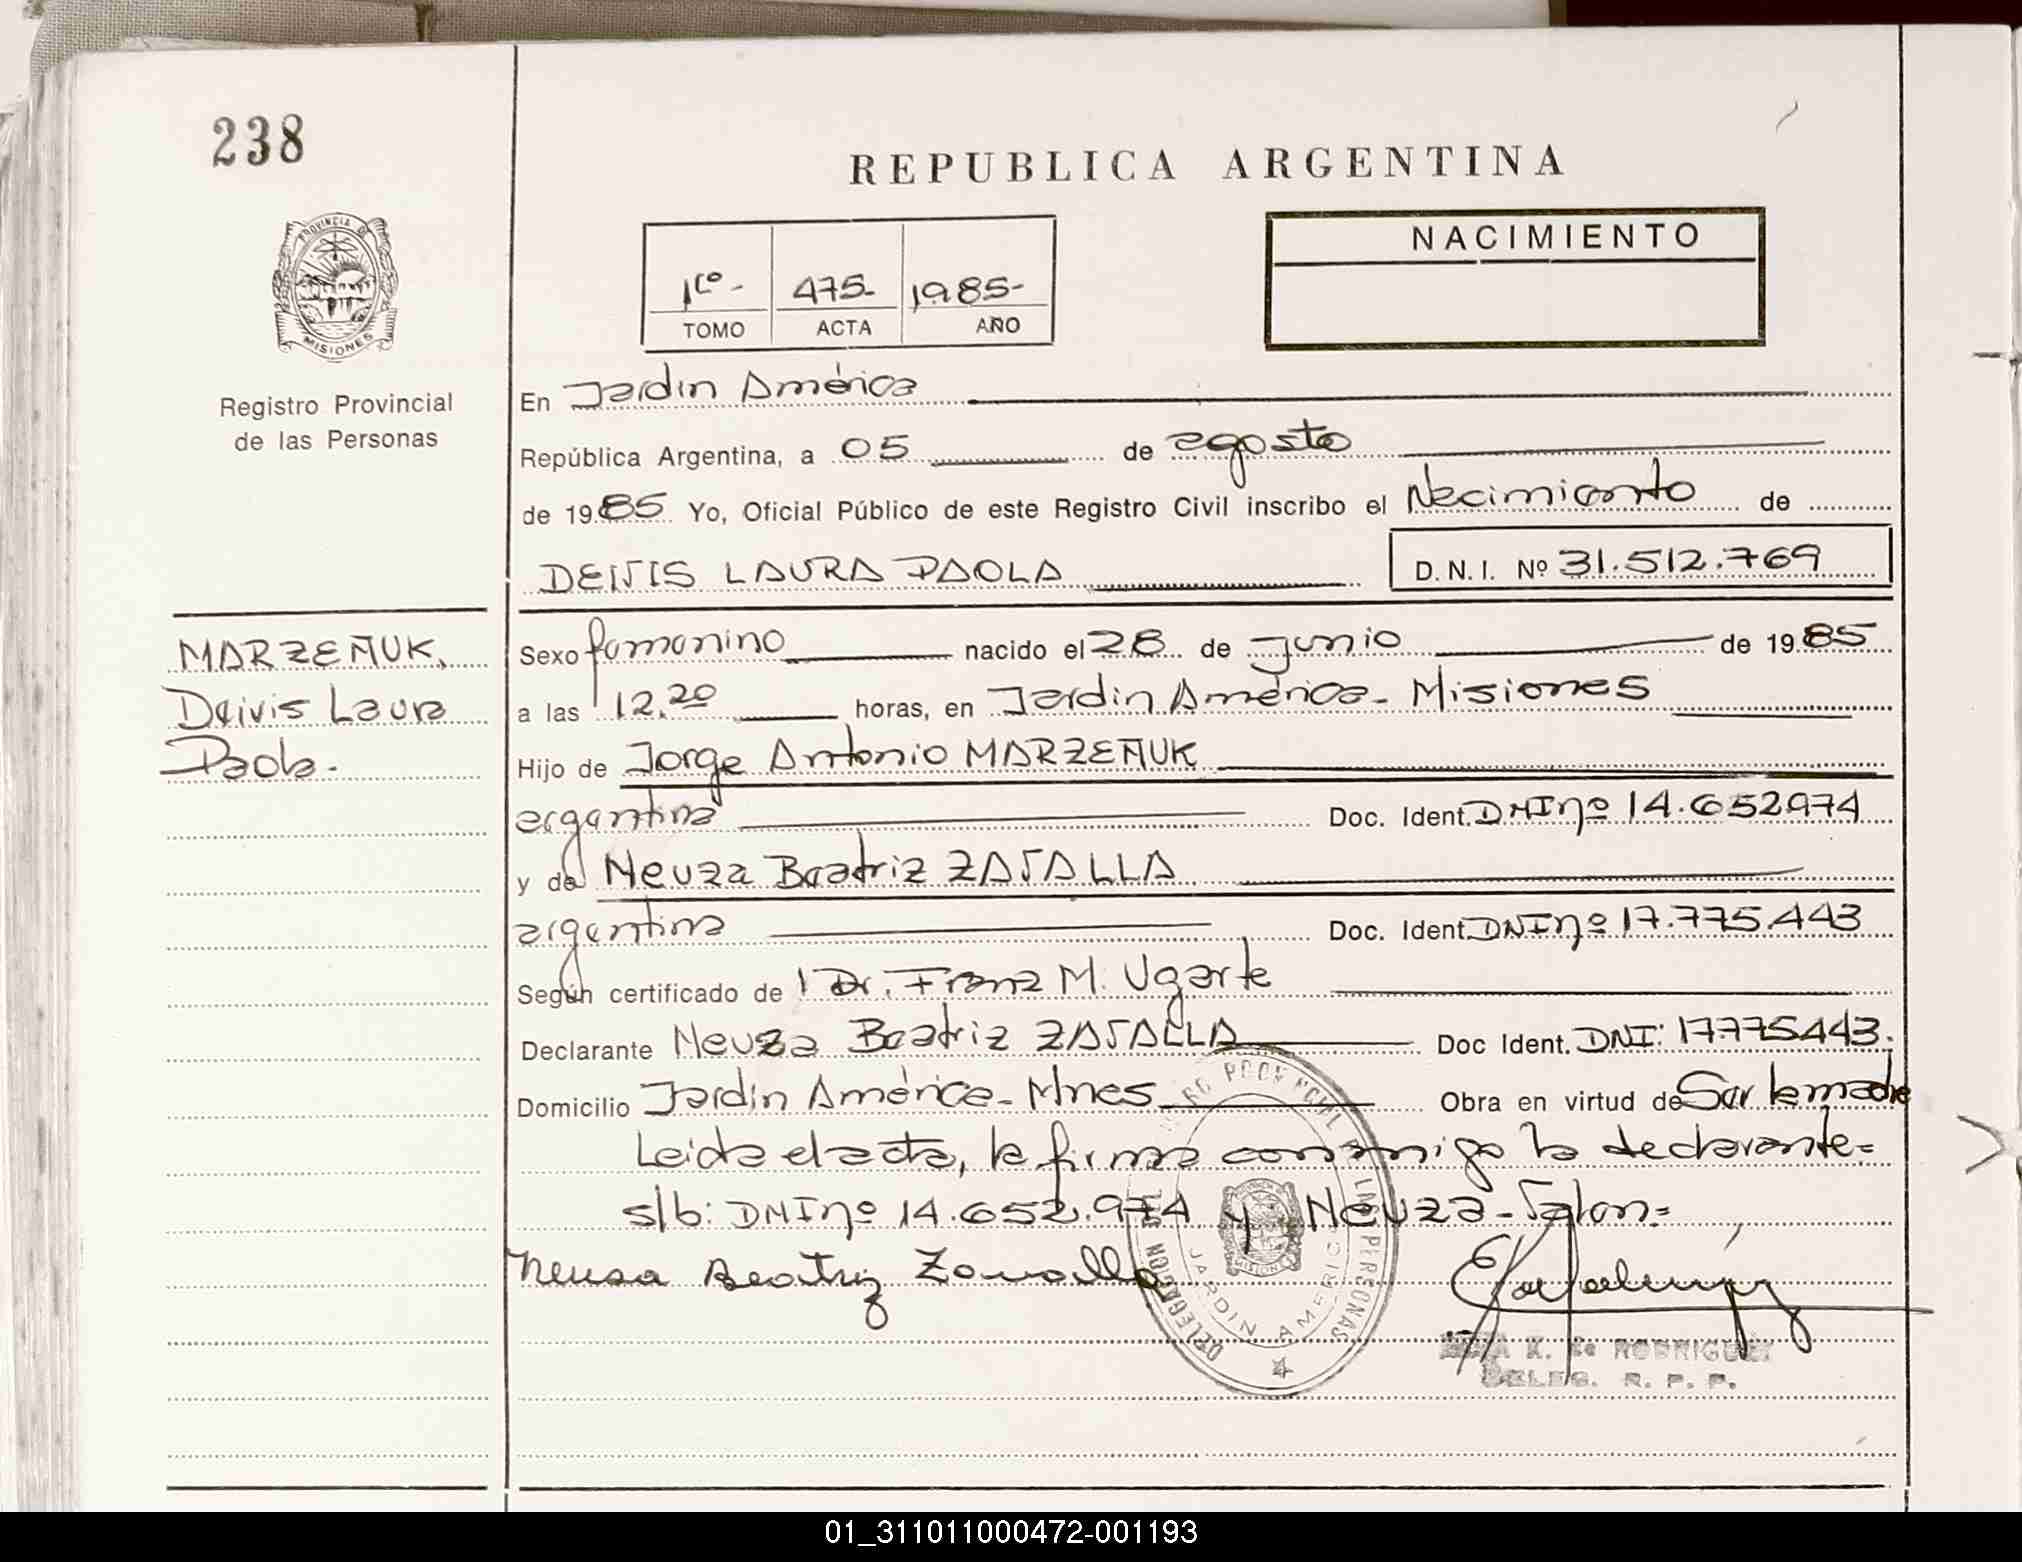 238
REPUBLICA ARGENTINA
NACIMIENTO
1ro - 475- 1985-
TOMO ACTA AÑO
PROVINCIA DE
MISIONES
Registro Provincial
de las Personas
En Jardin América
República Argentina, a 05 de agosto
de 1985 Yo, Oficial Público de este Registro Civil inscribo el Nacimiento de
DEIVIS LAURA PAOLA D.N.I. Nº 31.512.769
MARZEÑUK,
Deivis Laura
Paola.-
Sexo femenino nacido el 28 de junio de 1985
a las 12,20 horas, en Jardin América - Misiones
Hijo de Jorge Antonio MARZEÑUK
argentina Doc. Ident. DNI nº 14.652974
y de Neuza Beatriz ZAVALLA
argentina Doc. Ident. DNI nº 17.775.443
Según certificado de l Dr. Franz M. Ugarte
Declarante Neuza Beatriz ZAVALLA Doc Ident. DNI: 17.775443.
Domicilio Jardin América - Mnes Obra en virtud de Ser la madre
Leida el acta, la firma conmigo la declarante=
s/b: DNI nº 14.652.974 y Neuza - Valen=
Neusa Beatriz Zavalla
JARDIN AMERICA
K. de RODRIGUEZ
DELEG. R. P. P.
01_311011000472-001193